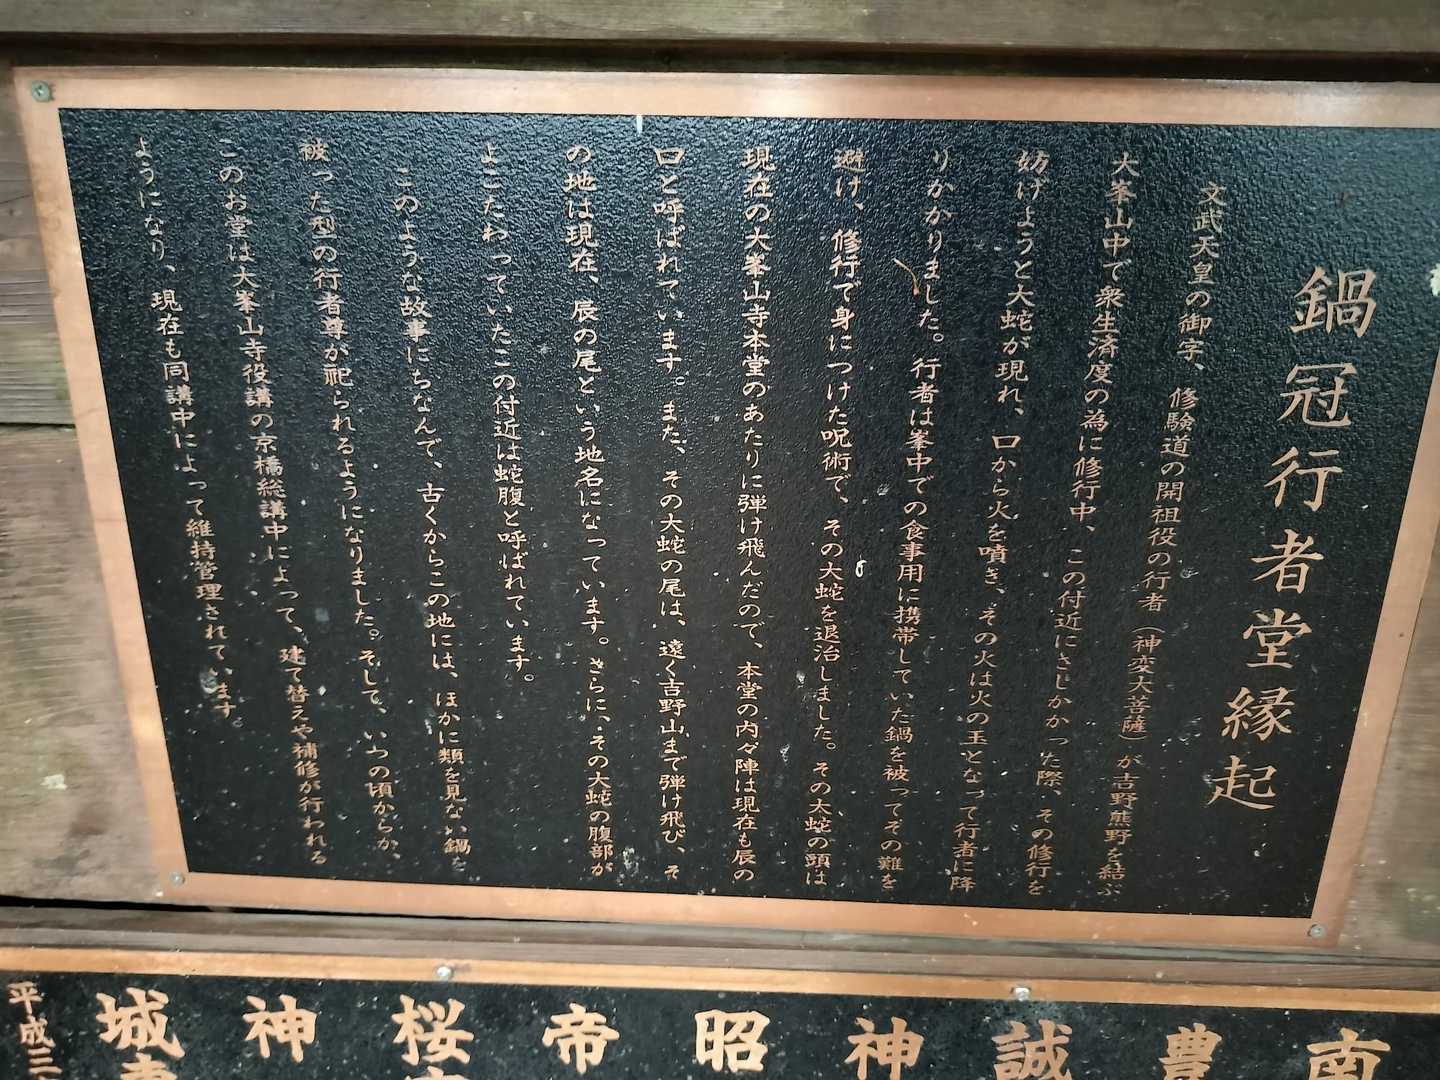 鍋冠行者堂縁起
文武天皇の御宇、修験道の開祖役の行者（神変大菩薩）が吉野熊野を結ぶ
大峯山中で衆生済度の為に修行中、この付近にさしかかった際、その修行を
妨げようと大蛇が現れ、口から火を噴き、その火は火の玉となって行者に降
りかかりました。行者は峯中での食事用に携帯していた鍋を被ってその難を
避け、修行で身につけた呪術で、その大蛇を退治しました。その大蛇の頭は
現在の大峯山寺本堂のあたりに弾け飛んだので、本堂の内々陣は現在も辰の
口と呼ばれています。また、その大蛇の尾は、遠く吉野山まで弾け飛び、そ
の地は現在、辰の尾という地名になっています。さらに、その大蛇の腹部が
よこたわっていたこの付近は蛇腹と呼ばれています。
このような故事にちなんで、古くからこの地には、ほかに類を見ない鍋を
被った型の行者尊が祀られるようになりました。そして、いつの頃からか、
このお堂は大峯山寺役講の京橋総講中によって、建て替えや補修が行われる
ようになり、現在も同講中によって維持管理されています。
南
豊
誠
神
昭
帝
桜
神
城
平成三